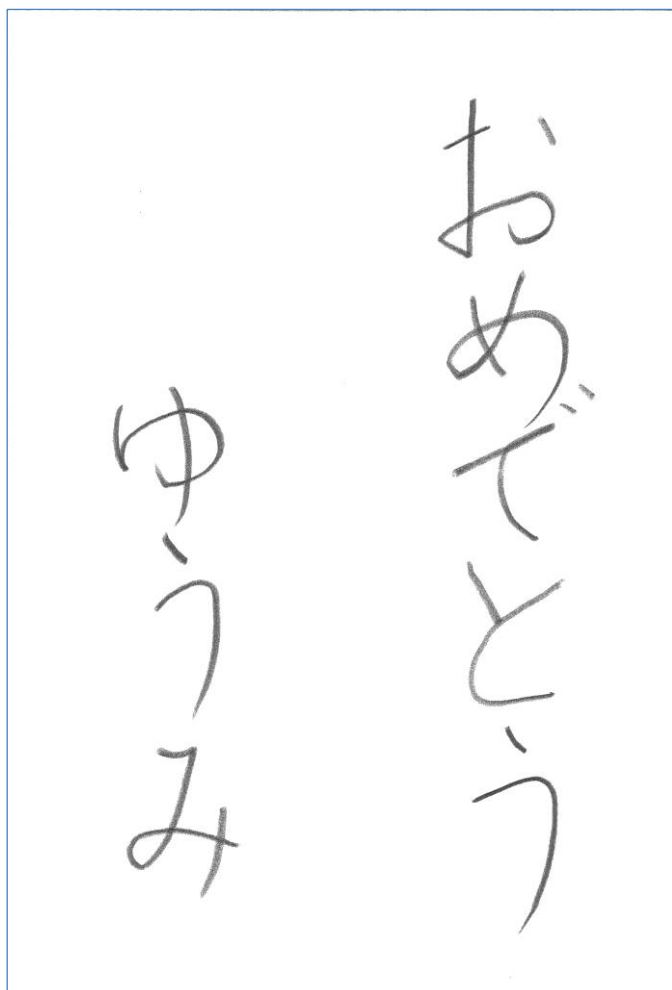 おめでとう
ゆうみ